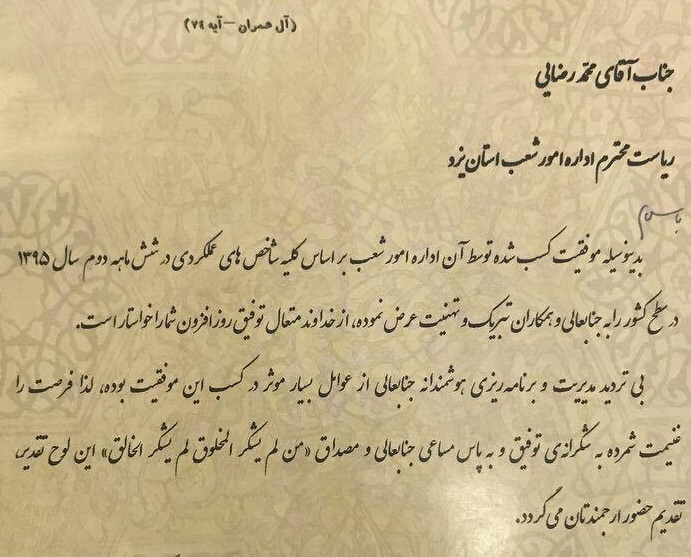 (آل عمران – آیه ۷۴)
جناب آقای محمد رضایی
ریاست محترم اداره امور شعب استان یزد
با سلام
بدینوسیله موفقیت کسب شده توسط آن اداره امور شعب بر اساس کلیه شاخص های عملکردی در شش ماهه دوم سال ۱۳۹۵
در سطح کشور را به جنابعالی و همکاران تبریک و تهنیت عرض نموده، از خداوند متعال توفیق روز افزون شما را خواستار است.
بی تردید مدیریت و برنامه ریزی هوشمندانه جنابعالی از عوامل بسیار موثر در کسب این موفقیت بوده، لذا فرصت را
غنیمت شمرده به شکرانه‌ی توفیق و به پاس مساعی جنابعالی و مصداق «من لم یشکر المخلوق لم یشکر الخالق» این لوح تقدیر،
تقدیم حضور ارجمندتان می گردد.